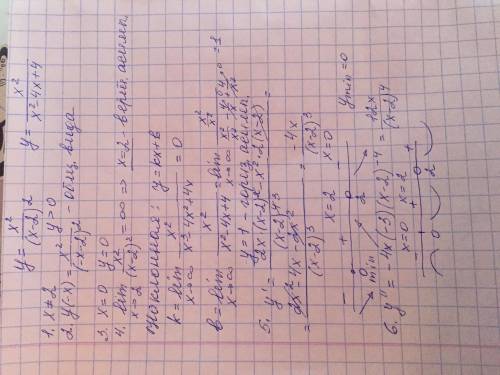 y = x²/(x-2)²   y = x²/(x²-4x+4)
1. x ≠ 2
2. y(-x) = x²/(-x-2)² y > 0 - общ. вида
3. x = 0 y = 0
4. lim x→2 x²/(x-2)² = ∞ => x = 2 - верт. асимп.
Наклонная: y = kx + b
k = lim x→∞ x²/(x³-4x²+4x) = 0
b = lim x→∞ x²/(x²-4x+4) = lim x→∞ = 1
y = 1 - гориз. асимп.
5. y' = (2x(x-2)² - x²·2(x-2))/(x-2)⁴ =
= (2x²-4x-2x²)/(x-2)³ = -4x/(x-2)³
x = 2 x = 0
- + -
0 2
min
y min = 0
6. y'' = -4x(-3)(x-2)⁻⁴ = 12x/(x-2)⁴
x = 0 x = 2
- + +
0 2